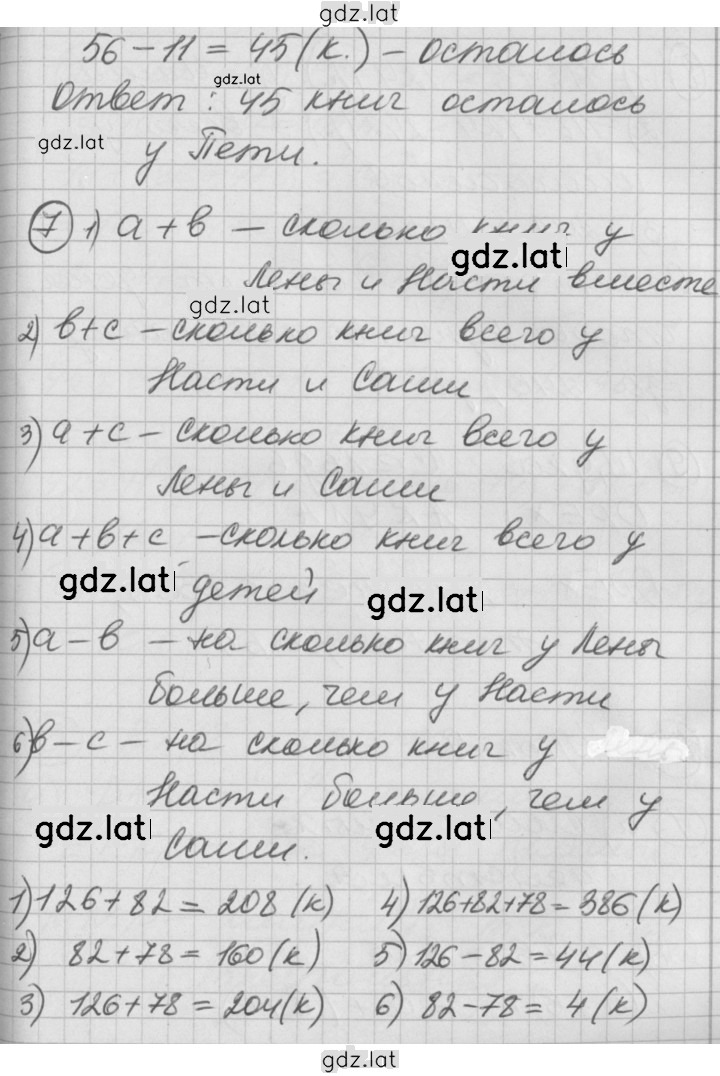 gdz.lat
56 - 11 = 45 (к.) - осталось
gdz.lat
Ответ : 45 книг осталось
gdz.lat
у Пети.
7 1) а + в - сколько книг у
gdz.lat
Лены и Насти вместе
gdz.lat
2) в+с - сколько книг всего у
Насти и Саши
3) а + с - сколько книг всего у
Лены и Саши
4) а + в + с - сколько книг всего у
gdz.lat детей gdz.lat
5) а - в - на сколько книг у Лены
больше, чем у Насти
6) в - с - на сколько книг у
Насти больше, чем у
gdz.lat Саши. gdz.lat
1) 126 + 82 = 208 (к) 4) 126+82+78 = 386 (к)
2) 82 + 78 = 160 (к) 5) 126 - 82 = 44 (к)
3) 126 + 78 = 204 (к) 6) 82 - 78 = 4 (к)
gdz.lat